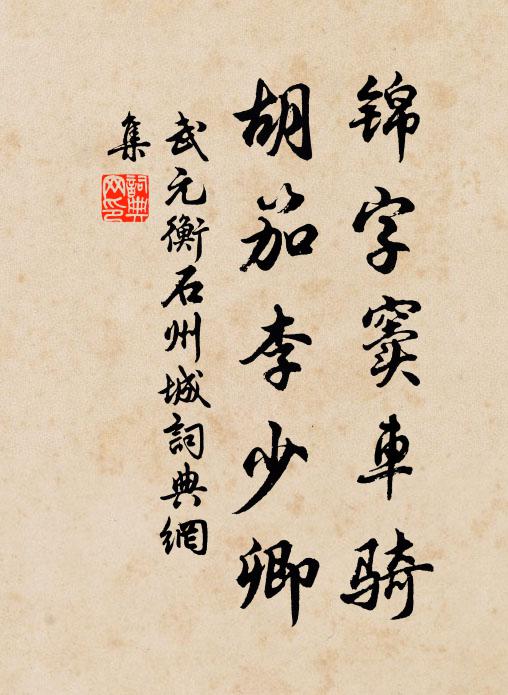 锦字窦车骑
胡笳李少卿
武元衡石州城詞典網
集
詞典
网印